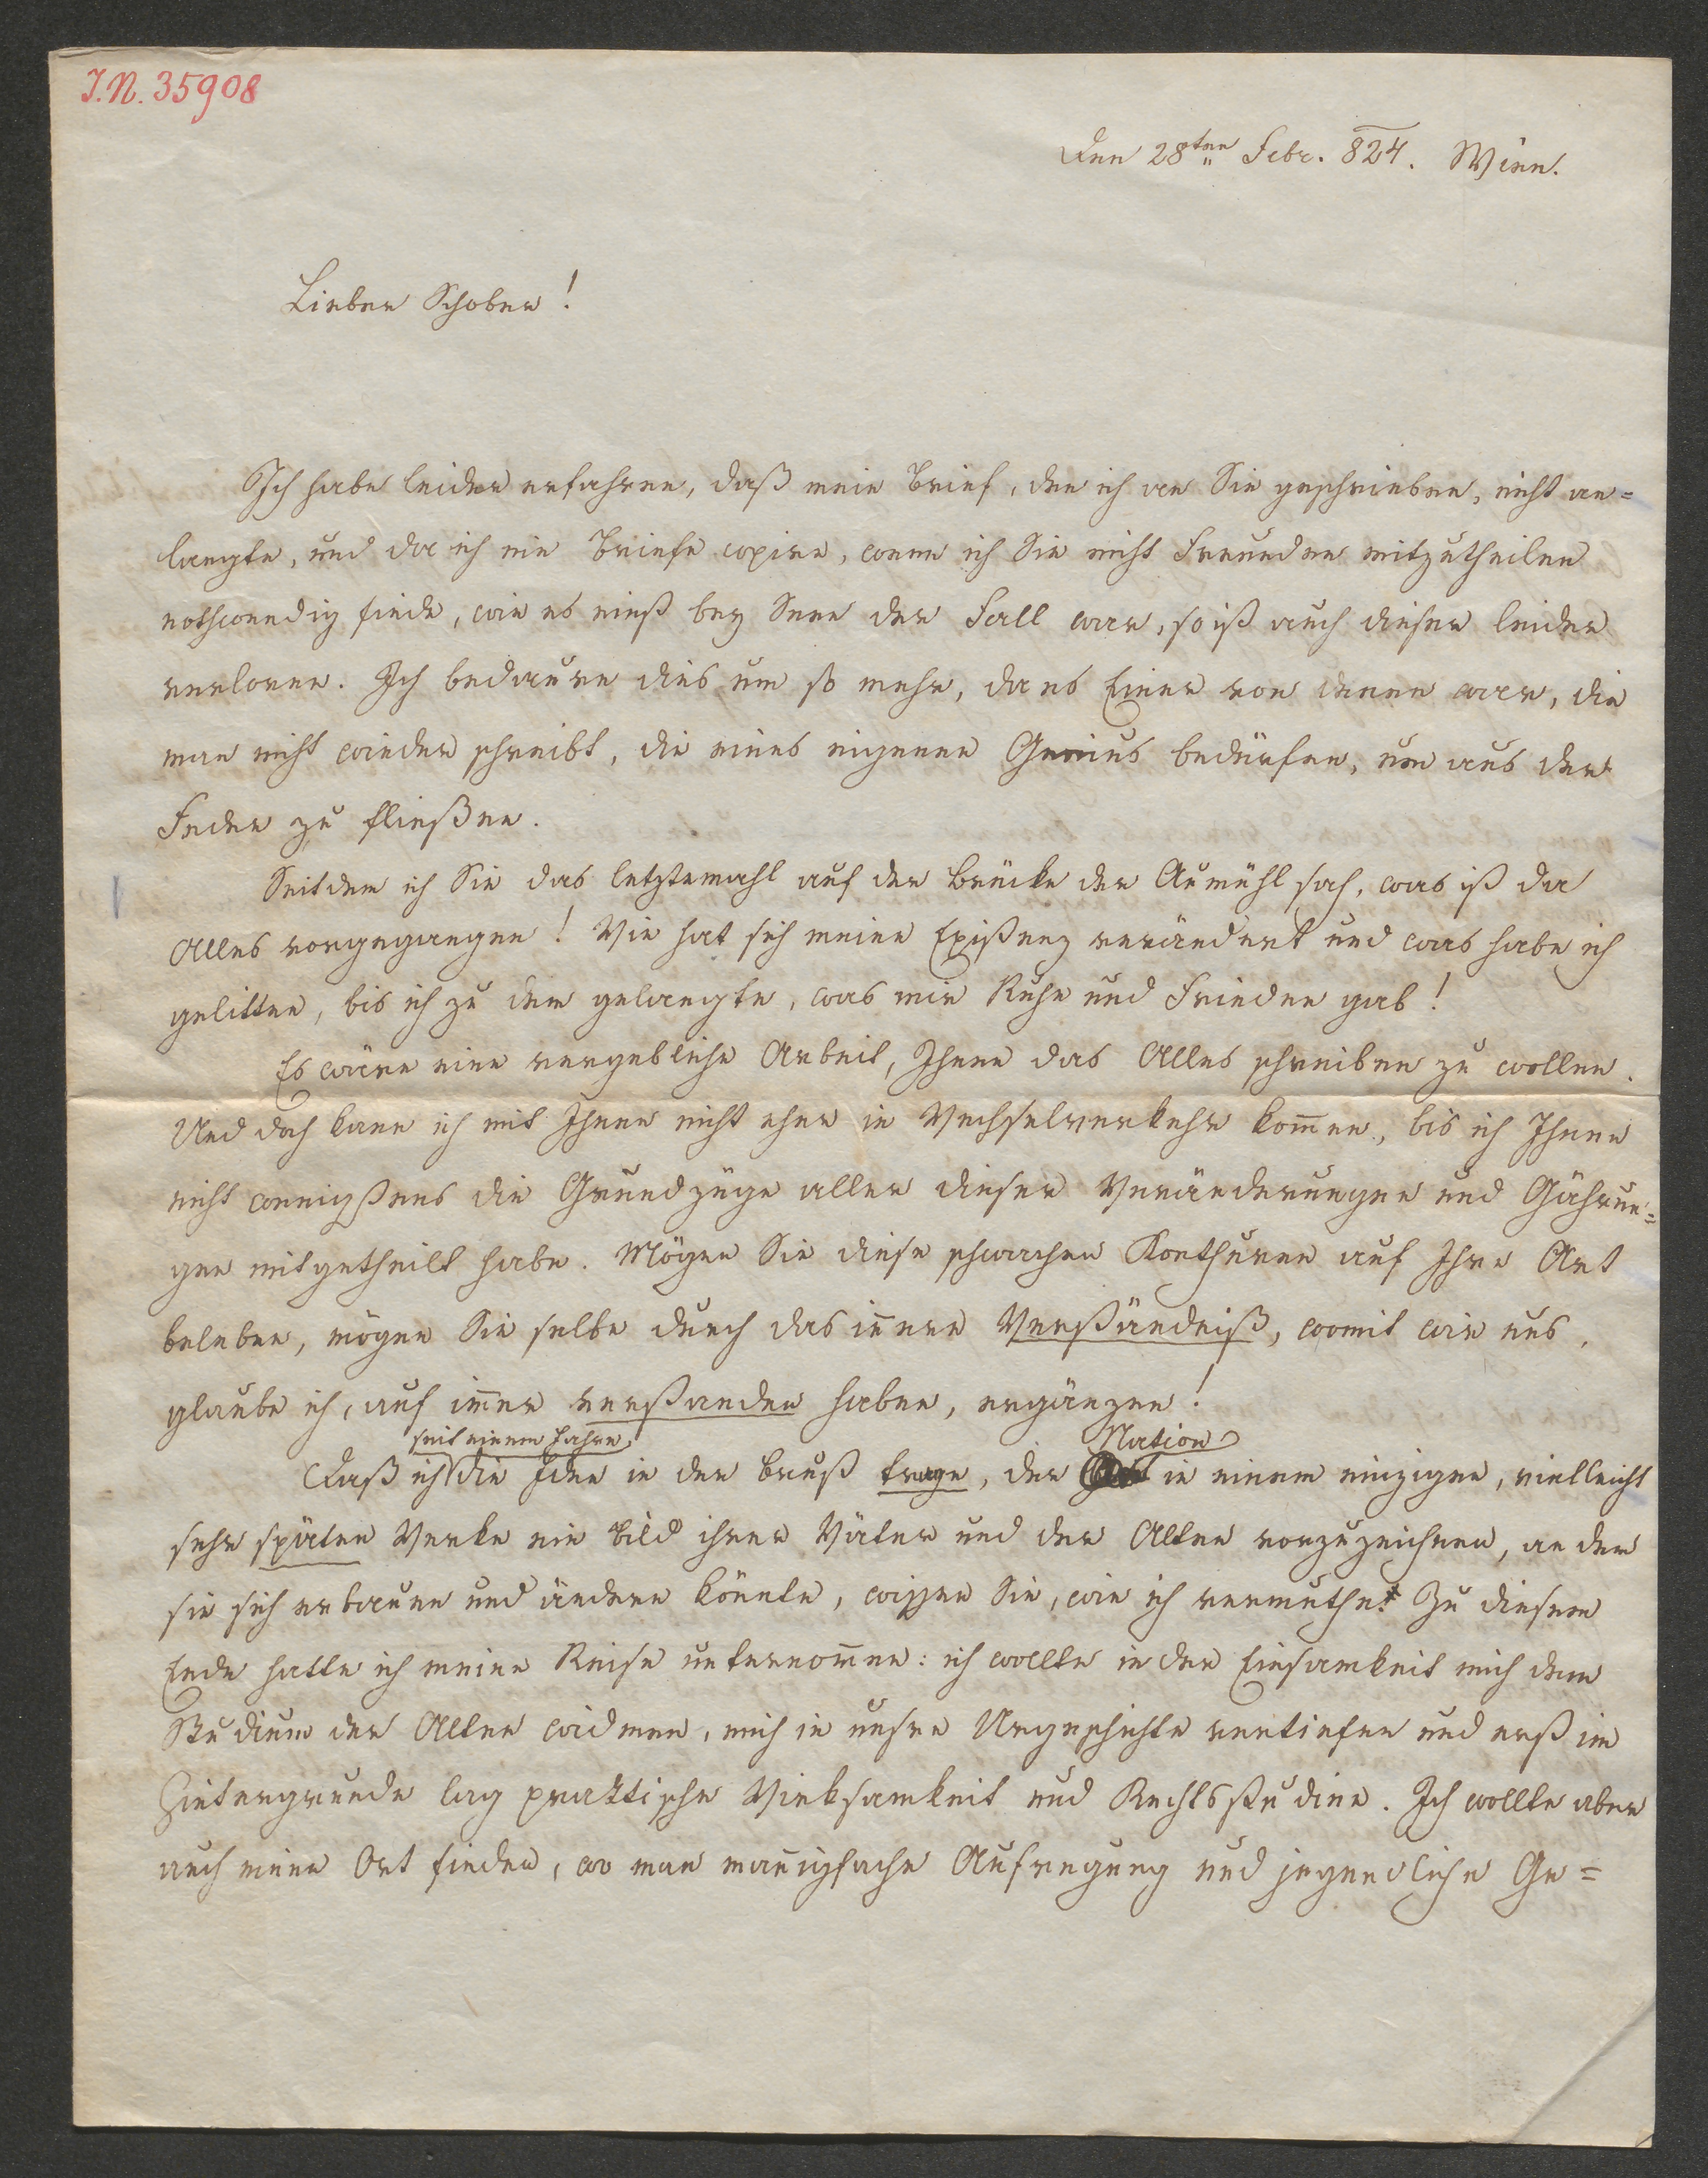 I.N. 35908
Den 28ten Febr. 824. Wien.
Lieber Schober!
Ich habe leider erfahren, daß mein Brief, den ich an Sie geschrieben, nicht an=
langte, und da ich nie Briefe copire, wenn ich Sie nicht Freunden mitzutheilen
nothwendig finde, wie es einst bey Senn der Fall war, so ist auch dieser leider
verloren. Ich bedaure dies um so mehr, da es Einer von denen war, die
man nicht wieder schreibt, die eines eigenen Genius bedürfen, um aus der
Feder zu fließen.
Seitdem ich Sie das letztemahl auf der Brücke der Aumühl sah, was ist da
Alles vorgegangen! Wie hat sich meine Existenz verändert und was habe ich
gelitten, bis ich zu dem gelangte, was mir Ruhe und Frieden gab!
Es wäre eine vergebliche Arbeit, Ihnen das Alles schreiben zu wollen.
Und doch kann ich mit Ihnen nicht eher in Wechselverkehr kom̅en, bis ich Ihnen
nicht wenigstens die Grundzüge aller dieser Veränderungen und Gährun=
gen mitgetheilt habe. Mögen Sie diese schwachen Konthuren auf Ihre Art
beleben, mögen Sie selbe durch das in̅ere Verständniß, womit wir uns,
glaube ich, auf im̅er verstanden haben, ergänzen!
seit einem Jahre Nation
Daß ich die Idee in der Brust trage, der in einem einzigen, vielleicht
sehr späten Werke ein Bild ihrer Väter und der Alten vorzuzeichnen, an dem
sie sich erbauen und ändern könnte, wissen Sie, wie ich vermuthe. Zu diesem
Ende hatte ich meine Reise unternom̅en: ich wollte in der Einsamkeit mich dem
Studium der Alten widmen, mich in unsre Urgeschichte vertiefen und erst im
Hintergrunde lag praktische Wirksamkeit und Rechtsstudien. Ich wollte aber
auch einen Ort finden, wo man man̅igfache Aufregung und jugendliche Ge=